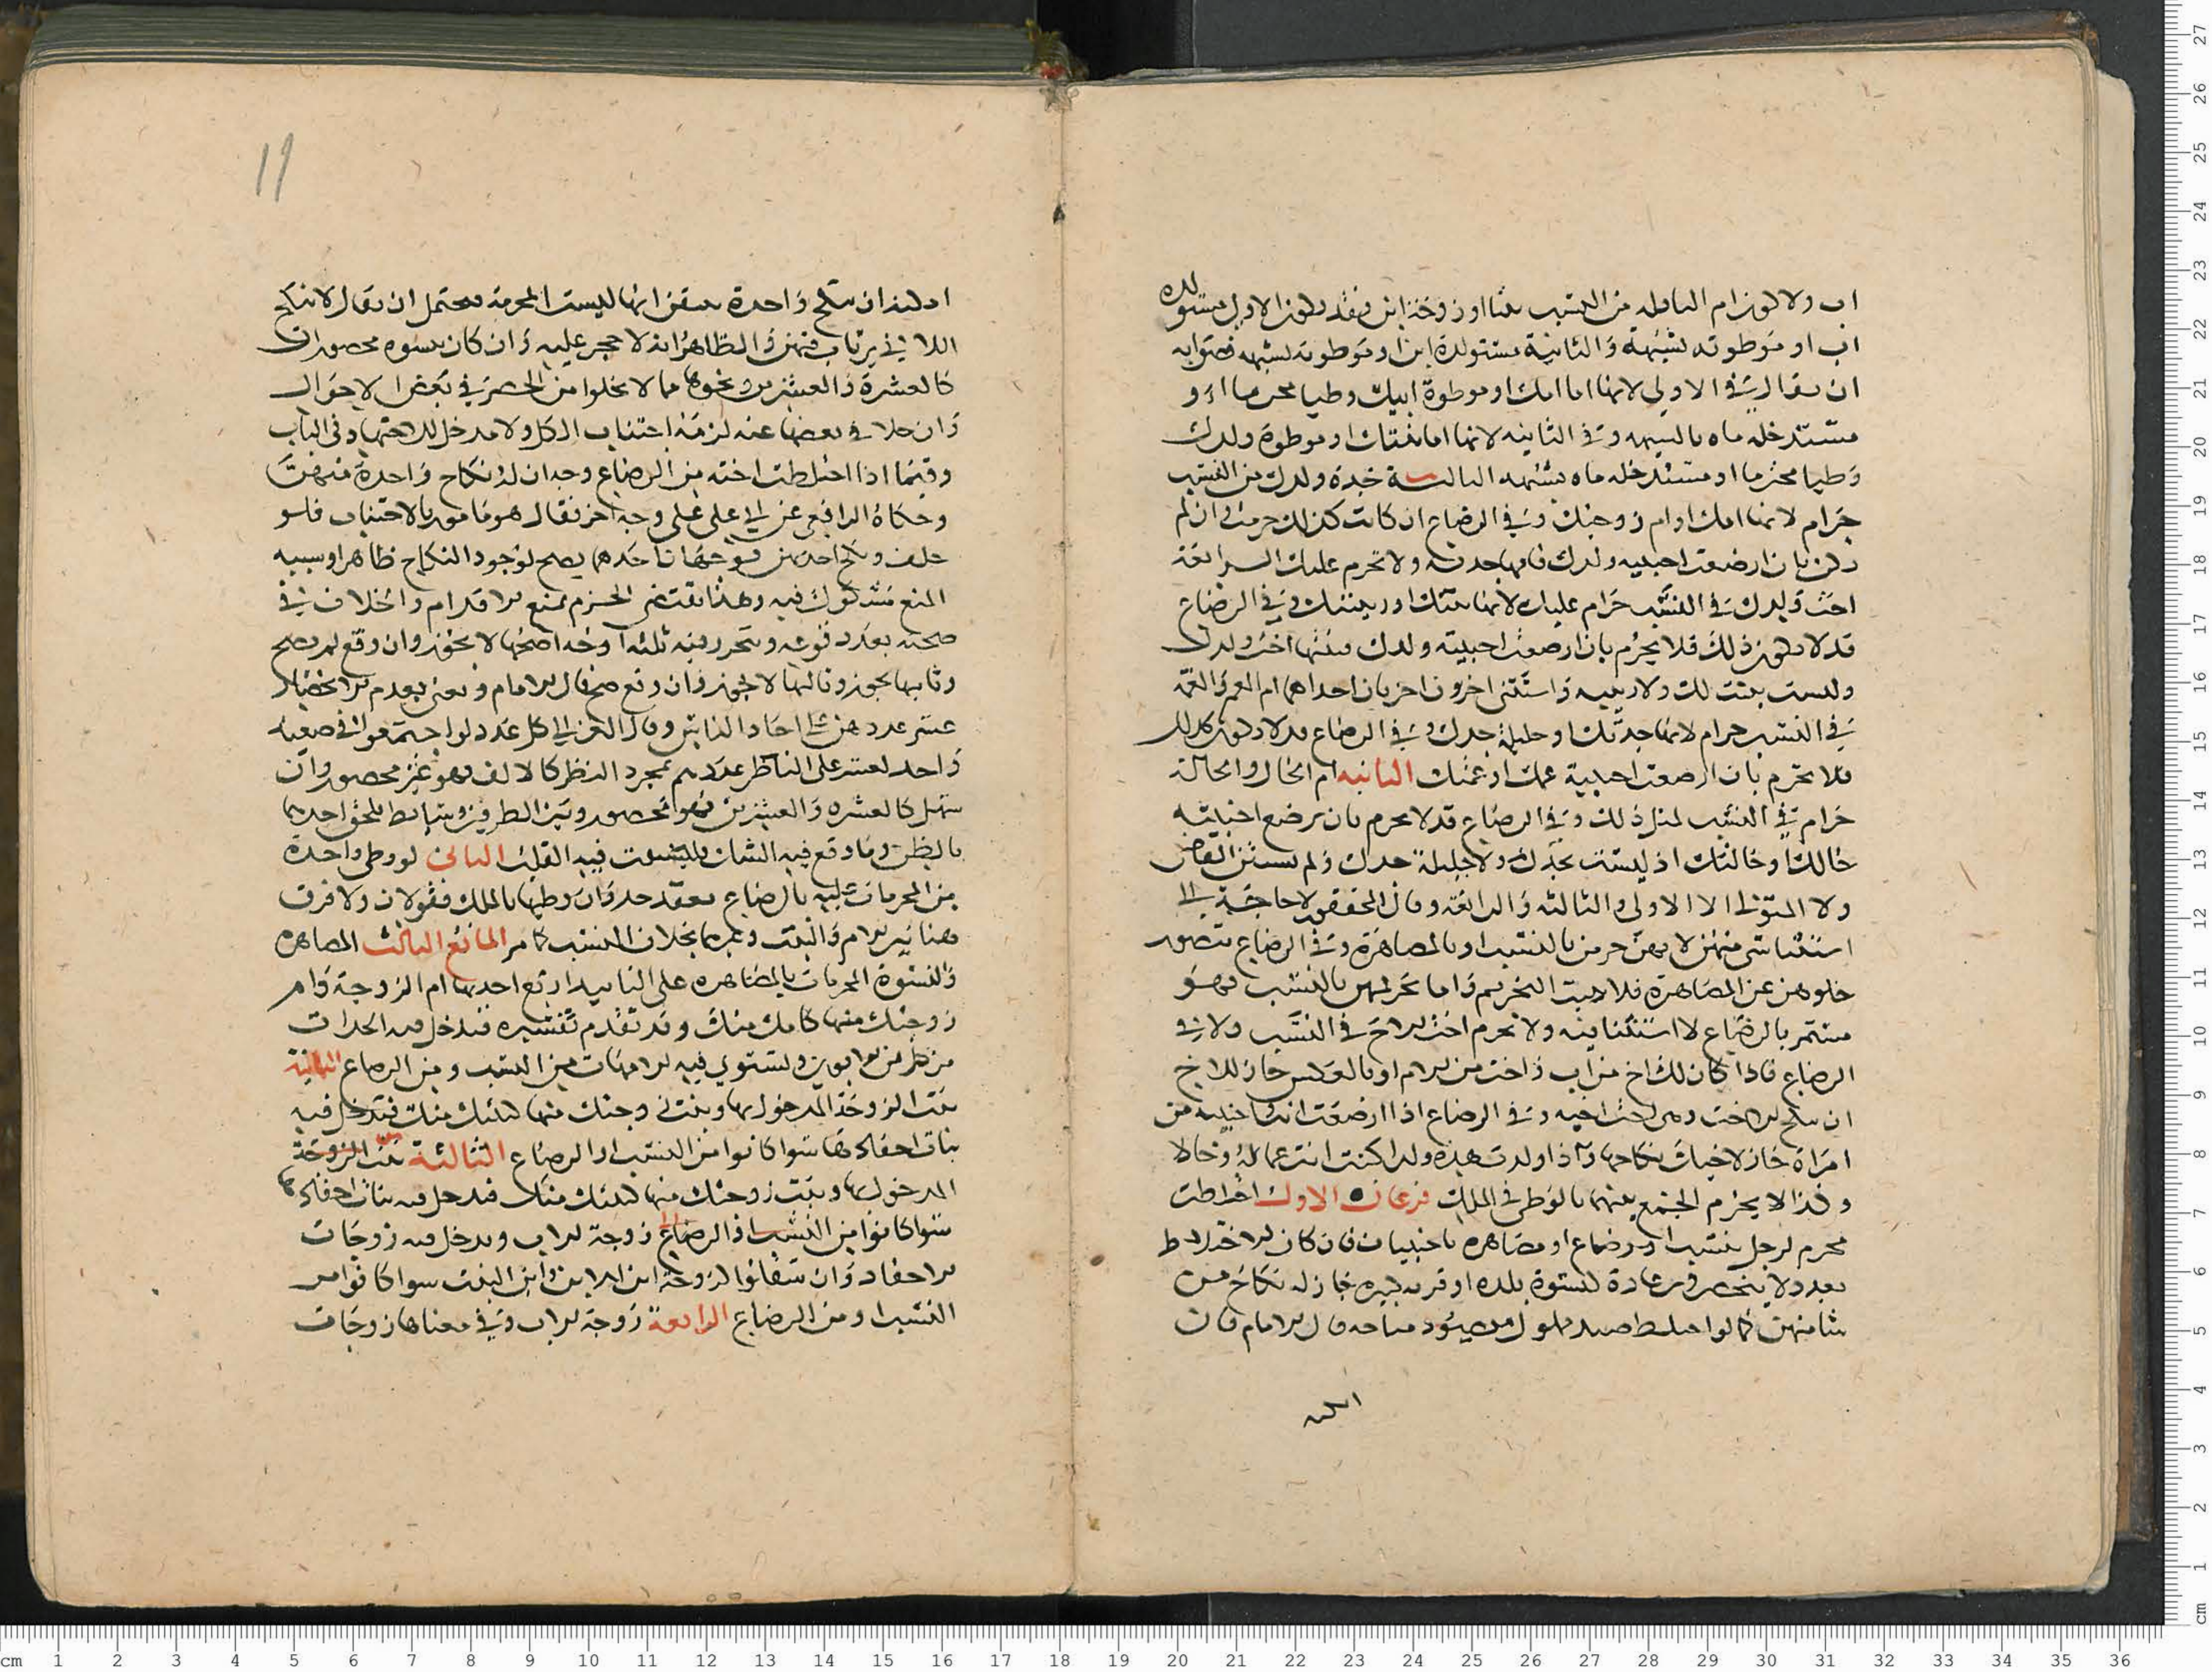 اب ولا لكون ام النافله من النسب بنتا او زوجة ابن فقد تكون الاولى مستولده
اب او موطوته بشبهة والثانية مستولدة ابن او موطوته بشبهه فصوابه
ان يقال في الاولى لانها اما امك او موطوة ابيك وطيا محرما او
مستدخله ماه بالشبهه وفي الثانيه لانها اما بنتك او موطوة ولدك
وطيا محترما او مستدخله ماه بشبهه الثالثة جدة ولدك من النسب
حرام لانها امك او ام زوجتك وفي الرضاع ان كانت كذلك حرمت وان لم
تكن بان ارضعت اجنبيه ولدك فامها جدته ولا تحرم عليك الرابعة
اخت ولدك في النسب حرام عليك لانها بنتك او ربيبتك وفي الرضاع
قد لا تكون ذلك فلا يحرم بان ارضعت اجنبية ولدك فبنتها اخت ولدك
وليست ببنت لك ولا ربيبه واستثنى اخرون اخريان احداهما ام العم والعمة
في النسب حرام لانها جدتك او حليلة جدك وفي الرضاع قد لا تكون كذلك
فلا تحرم بان ارضعت اجنبية عمك او عمتك الثانيه ام الخال والخالة
حرام في النسب لمثل ذلك وفي الرضاع قد لا يحرم بان ترضع اجنبية
خالك او خالتك اذ ليست بجدك ولا حليلة جدك ولم يستثن
ولا المتولي الا الاولى والثالثه والرابعة وقال المحققون لا حاجة الى
استثنا شي منهن لانهن حرمن بالنسب او بالمصاهرة وفي الرضاع يتصور
خلوهن عن المصاهرة فلا يثبت التحريم واما تحريمهن بالنسب فهو
مستمر بالرضاع لا استثنا فيه ولا تحرم اخت الاخ في النسب ولا في
الرضاع فاذا كان لك اخ من اب واخت من الام او بالعكس جاز للاخ
ان ينكح الاخت وهي اخت اخيه وفي الرضاع اذا ارضعتك اجنبية من
امراة جاز لاخيك نكاحها واذا ولدت هذه ولدا كنت انت عما له وخالا
وكذا لا يحرم الجمع بينهما بالوطي في الملك فرعان الاول اختلطت
محرم لرجل بنسب او رضاع او مصاهره باجنبيات فان كان الاختلاط
بعدد لا ينحصر في العادة كنسوة بلده او قريه كبيره جاز له نكاح من
شا منهن كما لو اختلط صيد مملوك بصيود مباحه قال الامام فان
امكنه
19
امكنه ان ينكح واحدة يتيقن انها ليست المحرمة فيحتمل ان يقال لا ينكح
اللاتي يرتاب فيهن والظاهر انه لا حجر عليه وان كان بنسوه محصورات
كالعشرة والعشرين ونحوها مما لا يخلوا من الحصر في بعض الاحوال
وان خلا في بعضها عنه لزمه اجتناب الكل ولا مدخل للاجتهاد في الباب
وفيما اذا اختلطت اخته من الرضاع وجدان له نكاح واحدة منهن
وحكاه الرافعي عن ابي علي على وجه اخر فقال هو مامور بالاجتناب فلو
خلف ونكح احدهن فوجهان احدهما يصح لوجود النكاح ظاهرا وسببه
المنع مشكوك فيه وهذا يقتضي الجزم بمنع الاقدام والخلاف في
صحته بعد وقوعه وتحرر فيه ثلثه اوجه اصحها لا يجوز وان وقع لم يصح
وثانيها يجوز وثالثها لا يجوز وان وقع صح قال الامام ونعني بعدم الانحصار
عسر عددهن على احاد الناس وقال الغزالي كل عدد لو اجتمعوا في صعيد
واحد لعسر على الناظر عددهم بمجرد النظر كالالف فهو غير محصور وان
سهل كالعشره والعشرين فهو محصور وبين الطرفين وسايط تلحق احدهما
بالظن وما وقع فيه الشك فليستفت فيه القلب الثاني لو وطي واحدة
من المحرمات عليه بالرضاع بعقد حد وان وطيها بالملك فقولان ولا فرق
هنا بين الام والبنت وغيرهما بخلاف النسب كما مر المانع الثالث المصاهره
والنسوة المحرمات بالمصاهره على التابيد اربع احديها ام الزوجة وام
زوجتك منها كامك منك وقد تقدم تفسيره فيدخل فيه الجدات
من كل من الابوين ويستوي فيه الامهات من النسب ومن الرضاع الثانية
بنت الزوجة المدخول بها وبنت زوجتك منها كبنتك منك فيدخل فيه
بنات احفادها سوا كانوا من النسب او الرضاع الثالثة بنت الزوجة
المدخول بها وبنت زوجتك منها كبنتك منك فيدخل فيه بنات احفادها
سوا كانوا من النسب او الرضاع زوجة الاب ويدخل فيه زوجات
الاحفاد وان سفلوا لزوجة ابن الابن وابن البنت سوا كانوا من
النسب او من الرضاع الرابعة زوجة الاب وفي معناها زوجات